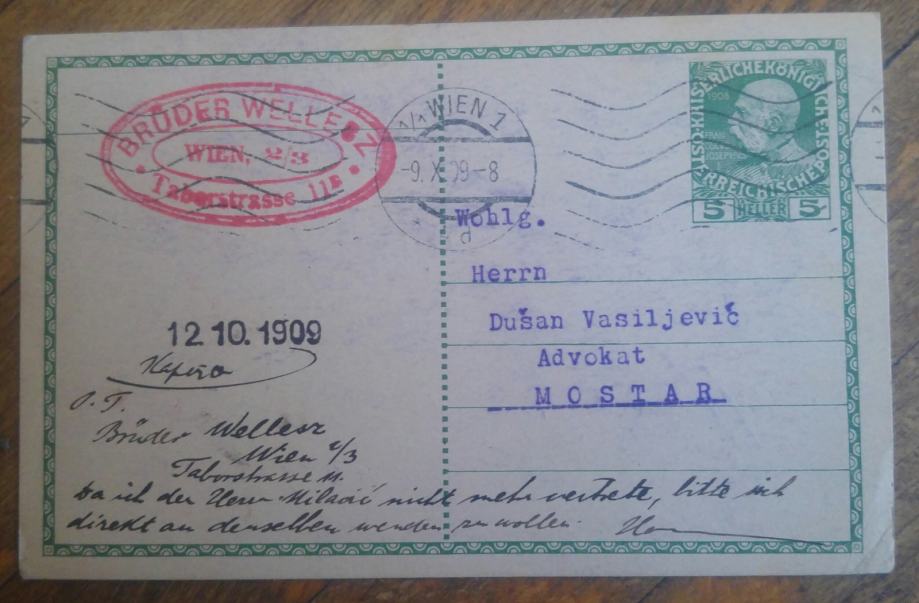 BRÜDER WELLESZ
WIEN, 2/3
Taborstrasse 11B
1/1 WIEN 1
-9. X 09-8
KAISERLICHEKÖNIGLICHE ÖSTERREICHISCHEPOST
1908
FRANZ
JOSEPH I
5 HELLER 5
Wohlg.
Herrn
Dušan Vasiljević
Advokat
MOSTAR
12.10.1909
P. T.
Brüder Wellesz
Wien 2/3
Taborstrasse 11.
Da ich den Herrn Milačić nicht mehr vertrete, bitte sich
direkt an denselben wenden zu wollen.